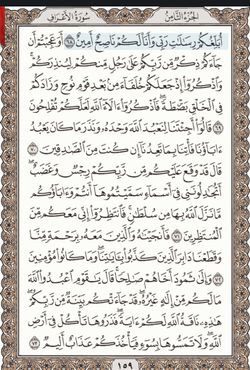 الجزء الثامن سورة الأعراف
أبلغكم رسالات ربي وأنا لكم ناصح أمين ٦٨ أوعجبتم أن
جاءكم ذكر من ربكم على رجل منكم لينذركم
واذكروا إذ جعلكم خلفاء من بعد قوم نوح وزادكم
في الخلق بصطة فاذكروا آلاء الله لعلكم تفلحون
٦٩ قالوا أجئتنا لنعبد الله وحده ونذر ما كان يعبد
آباؤنا فأتنا بما تعدنا إن كنت من الصادقين ٧٠
قال قد وقع عليكم من ربكم رجس وغضب
أتجادلونني في أسماء سميتموها أنتم وآباؤكم
ما نزل الله بها من سلطان فانتظروا إني معكم من
المنتظرين ٧١ فأنجيناه والذين معه برحمة منا
وقطعنا دابر الذين كذبوا بآياتنا وما كانوا مؤمنين
٧٢ وإلى ثمود أخاهم صالحا قال يا قوم اعبدوا الله
ما لكم من إله غيره قد جاءتكم بينة من ربكم
هذه ناقة الله لكم آية فذروها تأكل في أرض
الله ولا تمسوها بسوء فيأخذكم عذاب أليم ٧٣
١٥٩